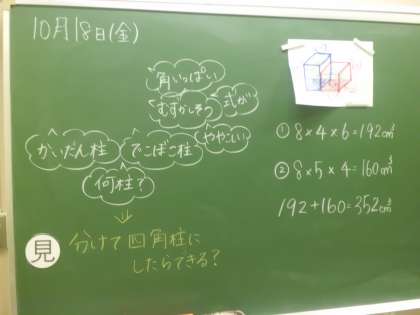 10月18日(金)
角いっぱい
むずかしそう
式が
ややこしい
かいだん柱
でこぼこ柱
何柱?
⇓
見
分けて四角柱に
したらできる?
① 8×4×6=192cm³
② 8×5×4=160cm³
192+160=352cm³